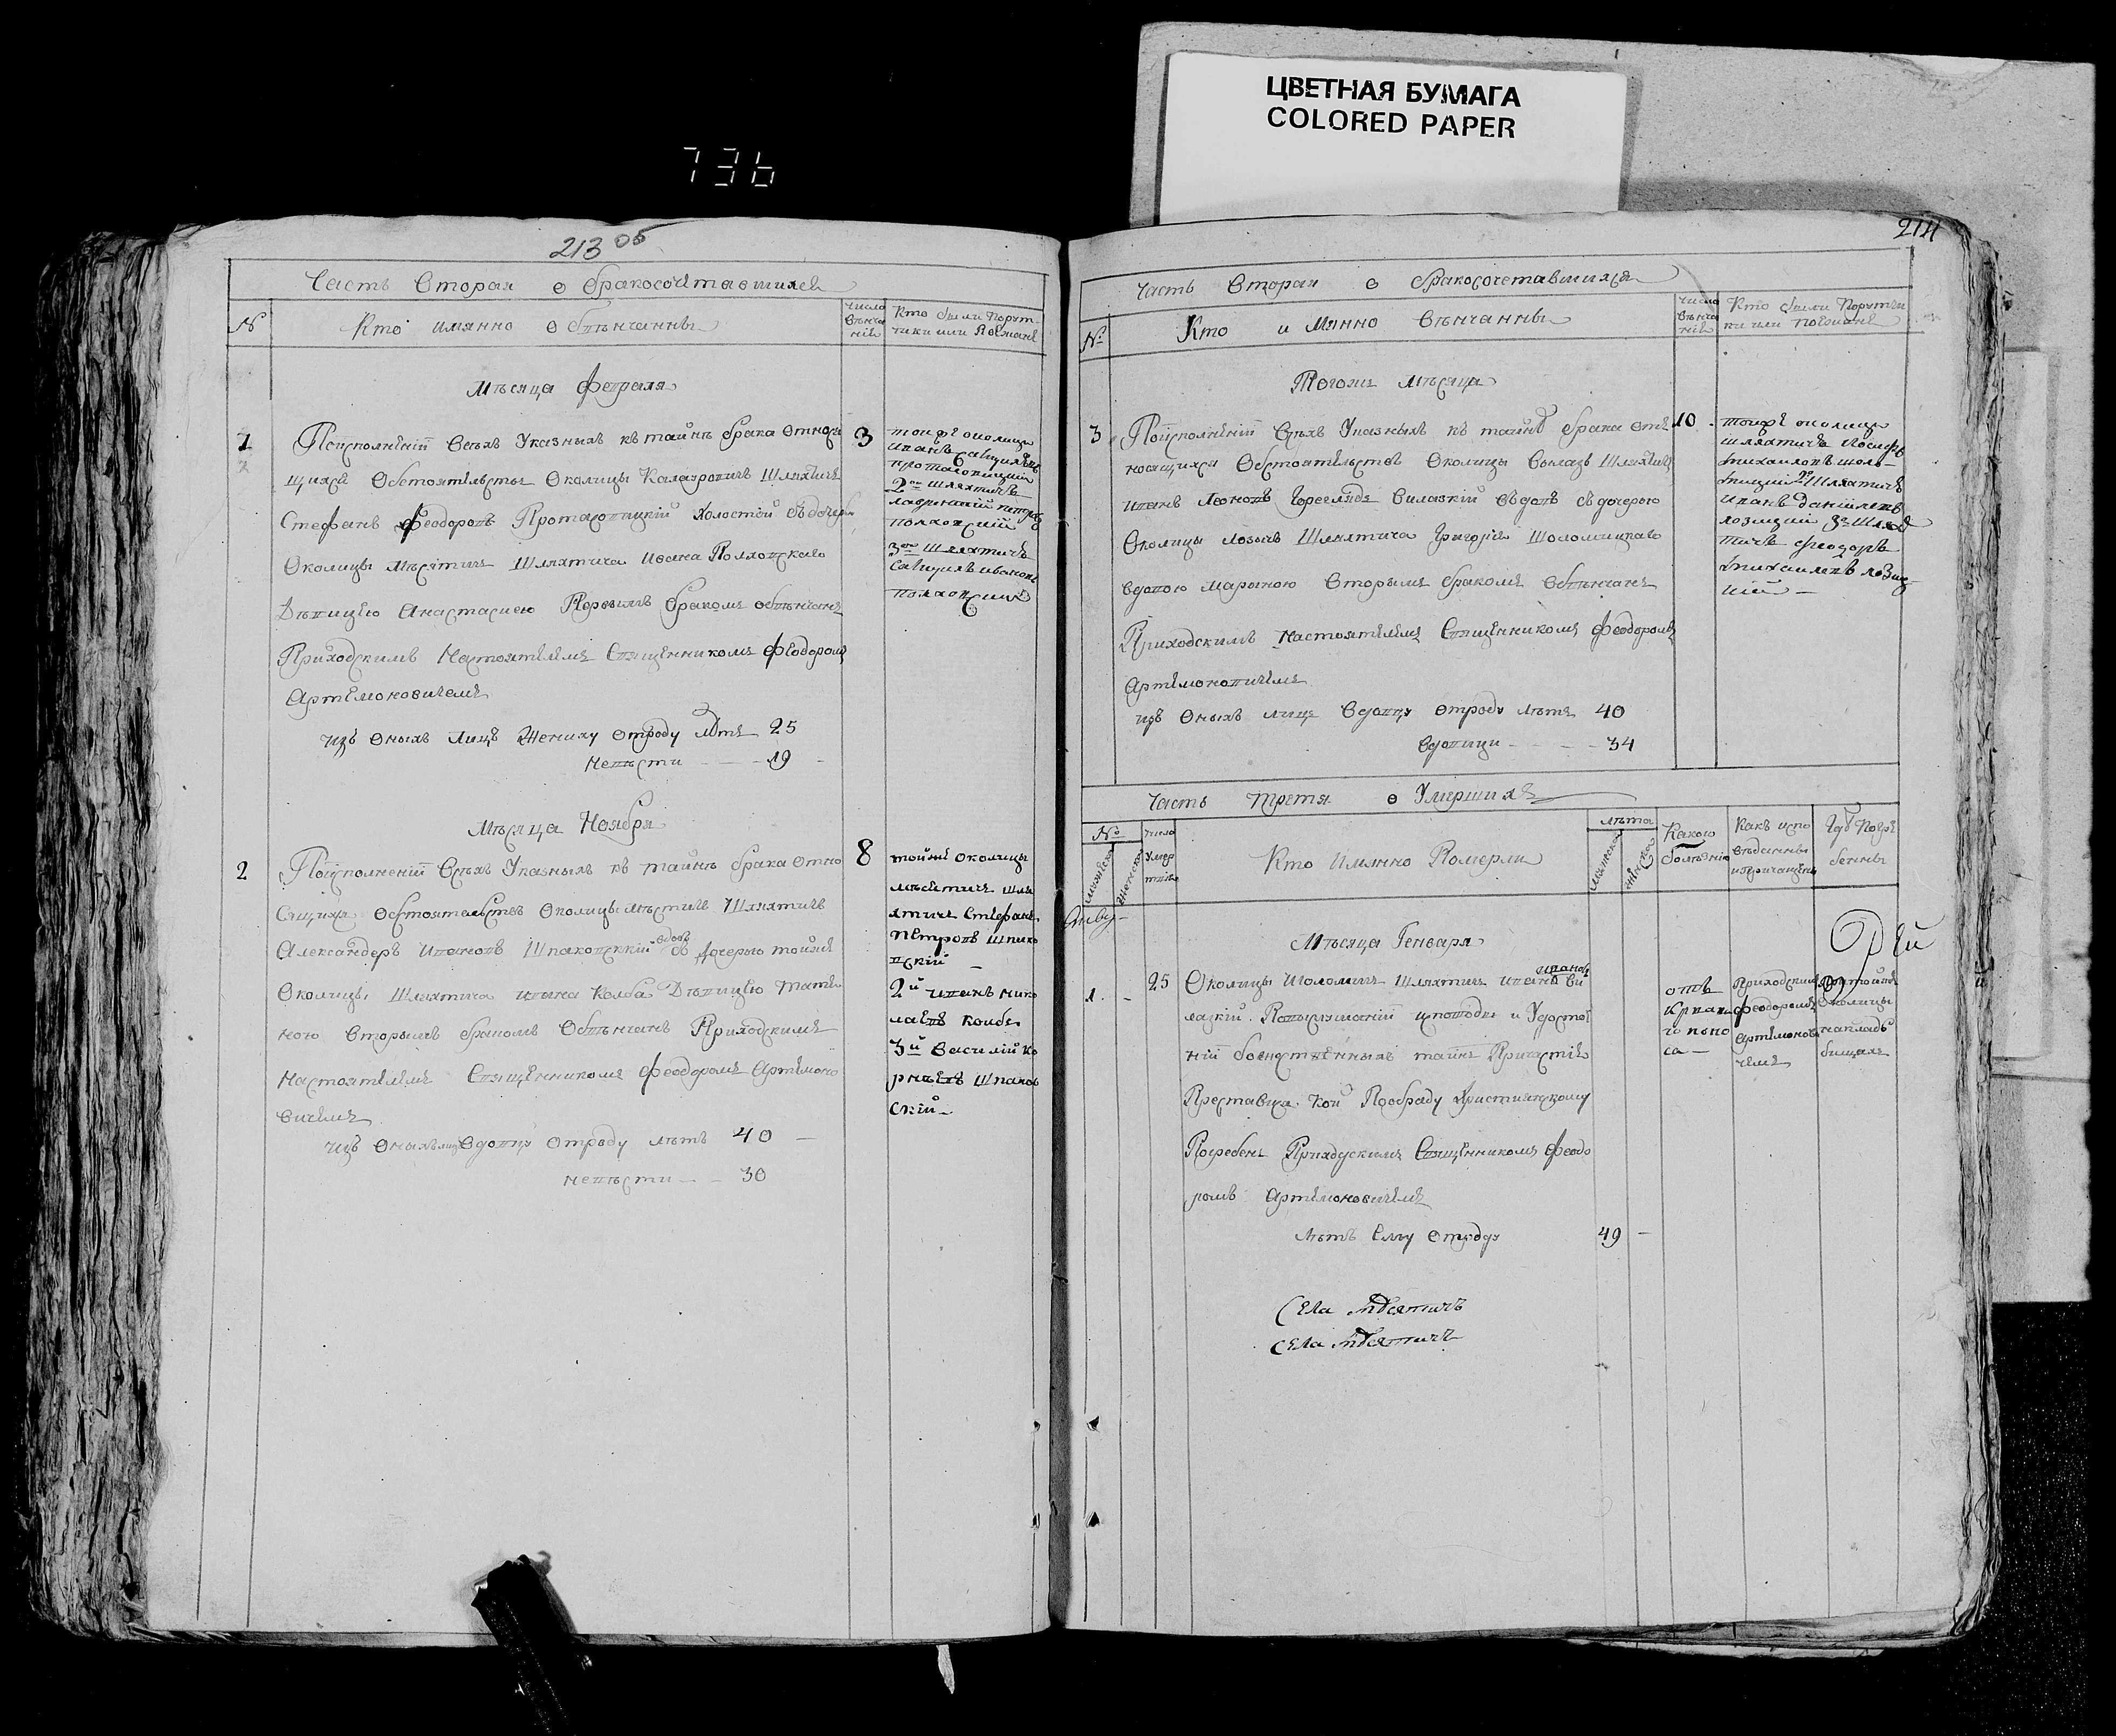 ЦВЕТНАЯ БУМАГА
COLORED PAPER
736
213 об
Часть Вторая о бракосочетавшихся
N
Кто имянно обвѣнчанны
число
вѣнча
нія
Кто были поруч
чики или поезжане
Мѣсяца февраля
1
По исполненіи всѣхъ указныхъ къ тайнѣ брака относя
щихся обстоятельствъ Околицы Шляхтичъ
Стефанъ Феодоровъ Протасовицкій холостой съ дочерю
Околицы Мѣсятичъ Шляхтича Ивана Поляховскаго
Дѣвицею Анастасиею Первымъ бракомъ обвѣнчанъ
Приходскимъ Настоятелемъ Священникомъ Феодоромъ
Артемоновичемъ
изъ оныхъ лицъ Жениху отроду лѣтъ 25
Невѣсти - - - 19
3
тоиже околицы
Иванъ
Протасовицкій
2ой шляхтичъ
Полховский
3ой шляхтичъ
Полховский
Мѣсяца Ноября
2
По исполненіи всѣхъ указныхъ къ тайнѣ брака отно
сящихся обстоятельствъ околицы Мѣстичъ Шляхтичъ
Александеръ Ивановъ Шпаковскій вдовъ съ Дочерью тойже
Околицы Шляхтича Ивана Колба Дѣвицею Татя
ною Вторымъ бракомъ обвѣнчанъ Приходскимъ
Настоятелемъ Священникомъ Феодоромъ Артемоно
вичемъ
изъ оныхъ лицъ вдовцу отроду лѣтъ 40 —
невѣсти — - 30
8
тойже околицы
Мѣсятичъ шля
хтичъ Стефанъ
Петровъ Шпако
вскій —
2й Иванъ Нико
лаевъ Колбъ
3й Василій Ко
рнѣевъ Шпаков
скій —
214
Часть Вторая о бракосочетавшихся
№
Кто имянно вѣнчанны
число
вѣнча
нія
Кто были поручи
ки или поезжане
Тогоже мѣсяца
3
По исполненіи всѣхъ указныхъ къ тайнѣ брака отъ
носящихся обстоятельствъ Околицы Шляхтичъ
Иванъ Леоновъ вдовъ съ дочерею
Околицы Шляхтича Григорія Шоломицкаго
вдовою Марьною Вторымъ бракомъ обвѣнчанъ
Приходскимъ Настоятелемъ Священникомъ Феодоромъ
Артемоновичемъ
изъ оныхъ лицъ вдовцу отроду лѣтъ 40
вдовици - - - - 34
10
тоиже околицы
шляхтичъ Иосифъ
Михаиловъ шоло-
мицкий 2й Шляхтичъ
Иванъ Даниилевъ
3й Шлях
тичъ Феодоръ
Михаилевъ
Часть третя о Умершихъ
№
мужеска
женска
число
умер
твія
Кто имянно померли
лѣта
мужеска
женска
Какою
болѣзнію
Какъ испо
вѣданны
и причащены
Гдѣ погре
бенны
Мѣсяца Генваря
1. -
25
Околицы Шоломичъ Шляхтичъ Иванъ Ивановъ Ви
лазкій. По и Удосто
ніи божественныхъ таинъ Причастіе
Преставися кой Пообряду Християнскому
Погребенъ Приходскимъ Священникомъ Феодо
ромъ Артемоновичемъ
лѣтъ Ему отроду
49 —
отъ
Приходскимъ
Феодоромъ
Артемонови
чемъ
тойже
Околицы
накладъ
бищахъ
Села Мѣсятичъ
Села Мѣсятичъ